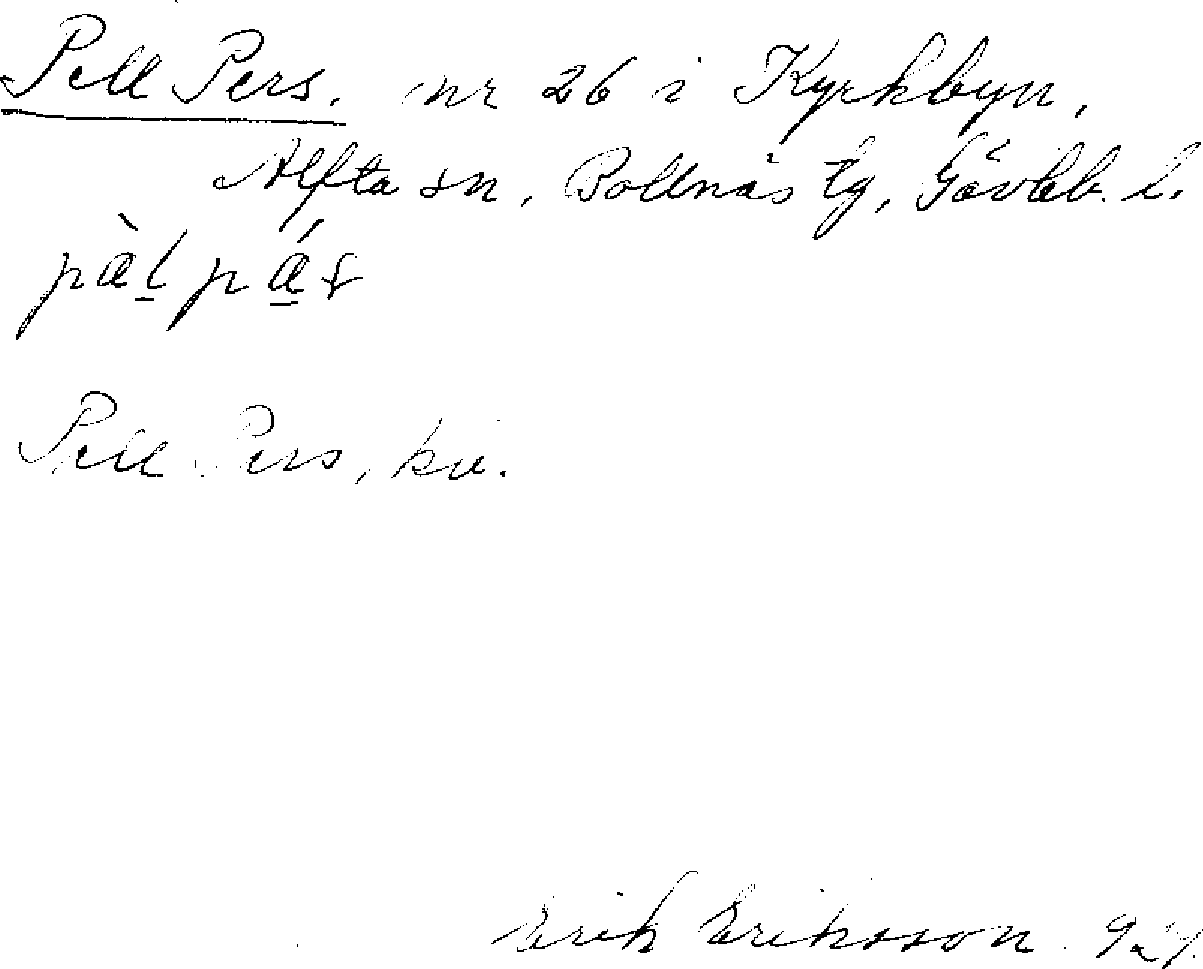 Pell Pers. nr 26 i Kyrkbyn,
Alfta sn, Bollnäs tg, Gävleb. l.
pàl̠ pá̠s
Pell Pers,
Erik Eriksson